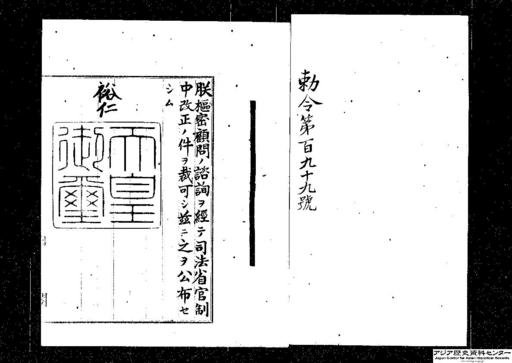 勅令第百九十九號
朕樞密顧問ノ諮詢ヲ經テ司法省官制
中改正ノ件ヲ裁可シ茲ニ之ヲ公布セ
シム
裕仁
天皇
御璽
アジア歴史資料センター
Japan Center for Asian Historical Records